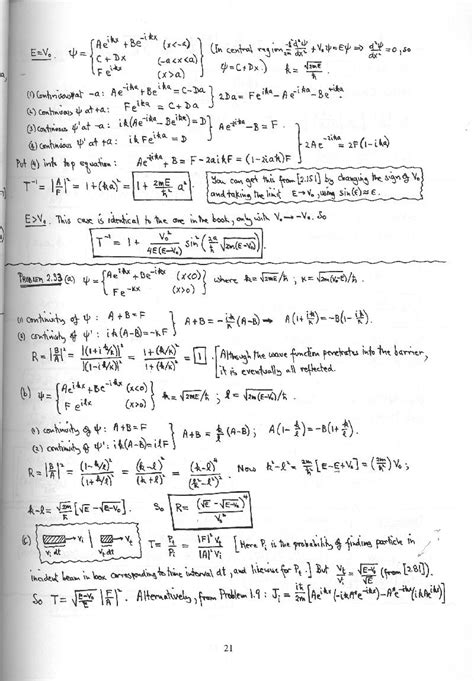 E=V₀. ψ = { Ae^{ikx} + Be^{-ikx} (x<-a)
C + Dx (-a<x<a)
Fe^{ikx} (x>a) }
(In central region -ħ²/2m d²ψ/dx² + V₀ψ = Eψ ⇒ d²ψ/dx² = 0, so
ψ = C+Dx.) k = √2mE/ħ
(1) Continuous ψ at -a: Ae^{-ika} + Be^{ika} = C-Da
(2) continuous ψ at +a: Fe^{ika} = C+Da
} 2Da = Fe^{ika} - Ae^{-ika} - Be^{ika}.
(3) continuous ψ' at -a: ik(Ae^{-ika} - Be^{ika}) = D
(4) continuous ψ' at +a: ikFe^{ika} = D
} Ae^{-2ika} - B = F.
} 2Ae^{-2ika} = 2F(1-ika)
Put (4) into top equation: Ae^{-2ika} + B = F - 2aikF = (1-2iak)F
T⁻¹ = |A/F|² = 1+(ka)² = 1 + 2mE/ħ² a².
[You can get this from [2.151] by changing the sign of V₀
and taking the limit E→V₀, using sin(ε)≅ε.]
E>V₀. This case is identical to the one in the book, only with V₀→-V₀. So
T⁻¹ = 1 + V₀²/4E(E-V₀) sin²(2a/ħ √2m(E-V₀)).
PROBLEM 2.33 (a) ψ = { Ae^{ikx} + Be^{-ikx} (x<0)
Fe^{-κx} (x>0) } where k = √2mE/ħ ; κ = √2m(V₀-E)/ħ.
(1) continuity of ψ: A+B = F
(2) continuity of ψ': ik(A-B) = -κF
} A+B = -ik/κ (A-B) ⇒ A(1+ik/κ) = -B(1-ik/κ).
R = |B/A|² = |(1+ik/κ)|²/|(1-ik/κ)|² = 1+(k/κ)²/1+(k/κ)² = 1.
[Although the wave function penetrates into the barrier,
it is eventually all reflected.
(b) ψ = { Ae^{ikx} + Be^{-ikx} (x<0)
Fe^{ilx} (x>0) } k = √2mE/ħ ; l = √2m(E-V₀)/ħ
(1) continuity of ψ: A+B = F
(2) continuity of ψ': ik(A-B) = ilF
} A+B = k/l (A-B) ; A(1-k/l) = -B(1+k/l).
R = |B/A|² = (1-k/l)²/(1+k/l)² = (k-l)²/(k+l)² = (k-l)⁴/(k²-l²)². Now k²-l² = 2m/ħ² [E-E+V₀] = (2m/ħ²)V₀ ;
k-l = √2m/ħ [√E - √E-V₀]. So R = (√E - √E-V₀)⁴/V₀².
(c) vᵢ vₜ T = Pₜ/Pᵢ = |F|²vₜ/|A|²vᵢ [Here Pᵢ is the probability of finding particle in
vᵢ dt vₜ dt
incident beam in box corresponding to time interval dt, and likewise for Pₜ.] But vₜ/vᵢ = √E-V₀/√E (from [2.81]).
So T = √(E-V₀)/E |F/A|². Alternatively, from Problem 1.9: Jᵢ = iħ/2m [Ae^{ikx}(-ikA*e^{-ikx}) - A*e^{-ikx}(ikAe^{ikx})]
21